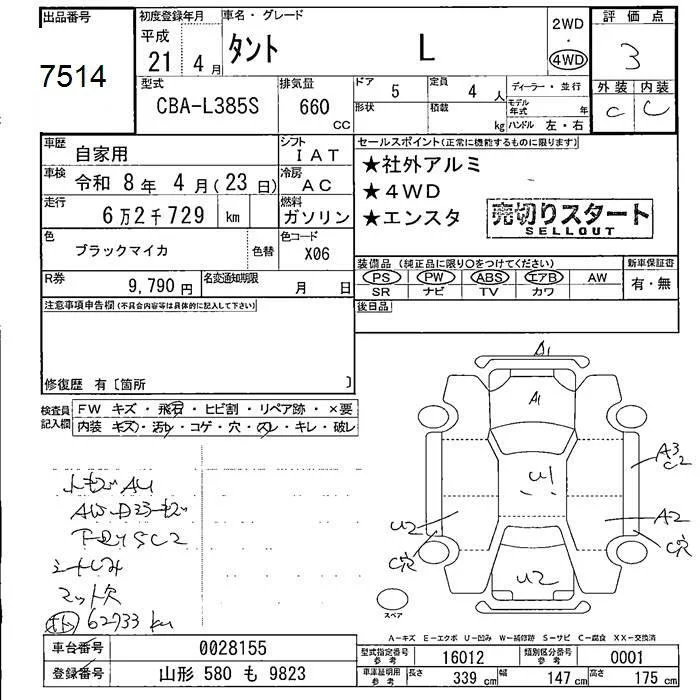 出品番号
7514
初度登録年月
平成
21 4月
車名・グレード
タント L
2WD
・
4WD
評価点
3
外装 内装
C C
型式
CBA-L385S
排気量
660
CC
ドア 5
定員 4 人
ディーラー・並行
形状
積載 kg
モデル年式 年
ハンドル 左・右
車歴 自家用
シフト IAT
車検 令和 8年 4月(23日)
冷房 AC
走行 6万2千729 km
燃料 ガソリン
色 ブラックマイカ
色替
色コード X06
R券 9,790円
名変通知期限 月 日
セールスポイント(正常に機能するものに限ります)
★社外アルミ
★4WD
★エンスタ
売切りスタート
SELLOUT
装備品(純正品に限り○をつけてください)
新車保証書
PS PW ABS エアB AW
SR ナビ TV カワ
有・無
後日品
注意事項申告欄(不具合内容等は具体的に記入して下さい)
修復歴 有〔箇所 〕
検査員記入欄
FW キズ・飛石・ヒビ割・リペア跡・×要
内装 キズ・汚レ・コゲ・穴・スレ・キレ・破レ
下廻りSC2
マット欠
62733 km
A1
A1
U1
U2
U2
C穴
A3
C2
A2
C穴
スペア
A-キズ E-エクボ U-凹み W-補修跡 S-サビ C-腐食 XX-交換済
車台番号 0028155
登録番号 山形 580 も 9823
型式指定番号 参考 16012
類別区分番号 参考 0001
車庫証明用 参考 長さ 339 cm 幅 147 cm 高さ 175 cm